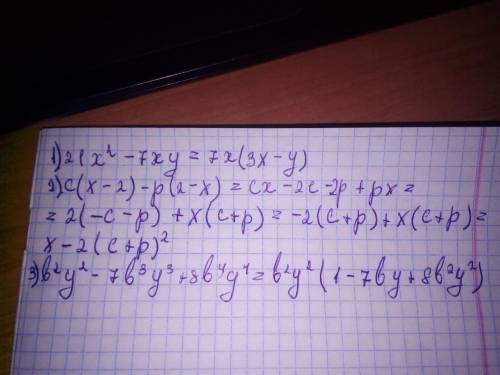 1) 21x² - 7xy = 7x(3x - y)
2) c(x - 2) - p(2 - x) = cx - 2c - 2p + px =
= 2(-c - p) + x(c + p) = -2(c + p) + x(c + p) =
x - 2(c + p)²
3) b²y² - 7b³y³ + 8b⁴y⁴ = b²y²(1 - 7by + 8b²y²)